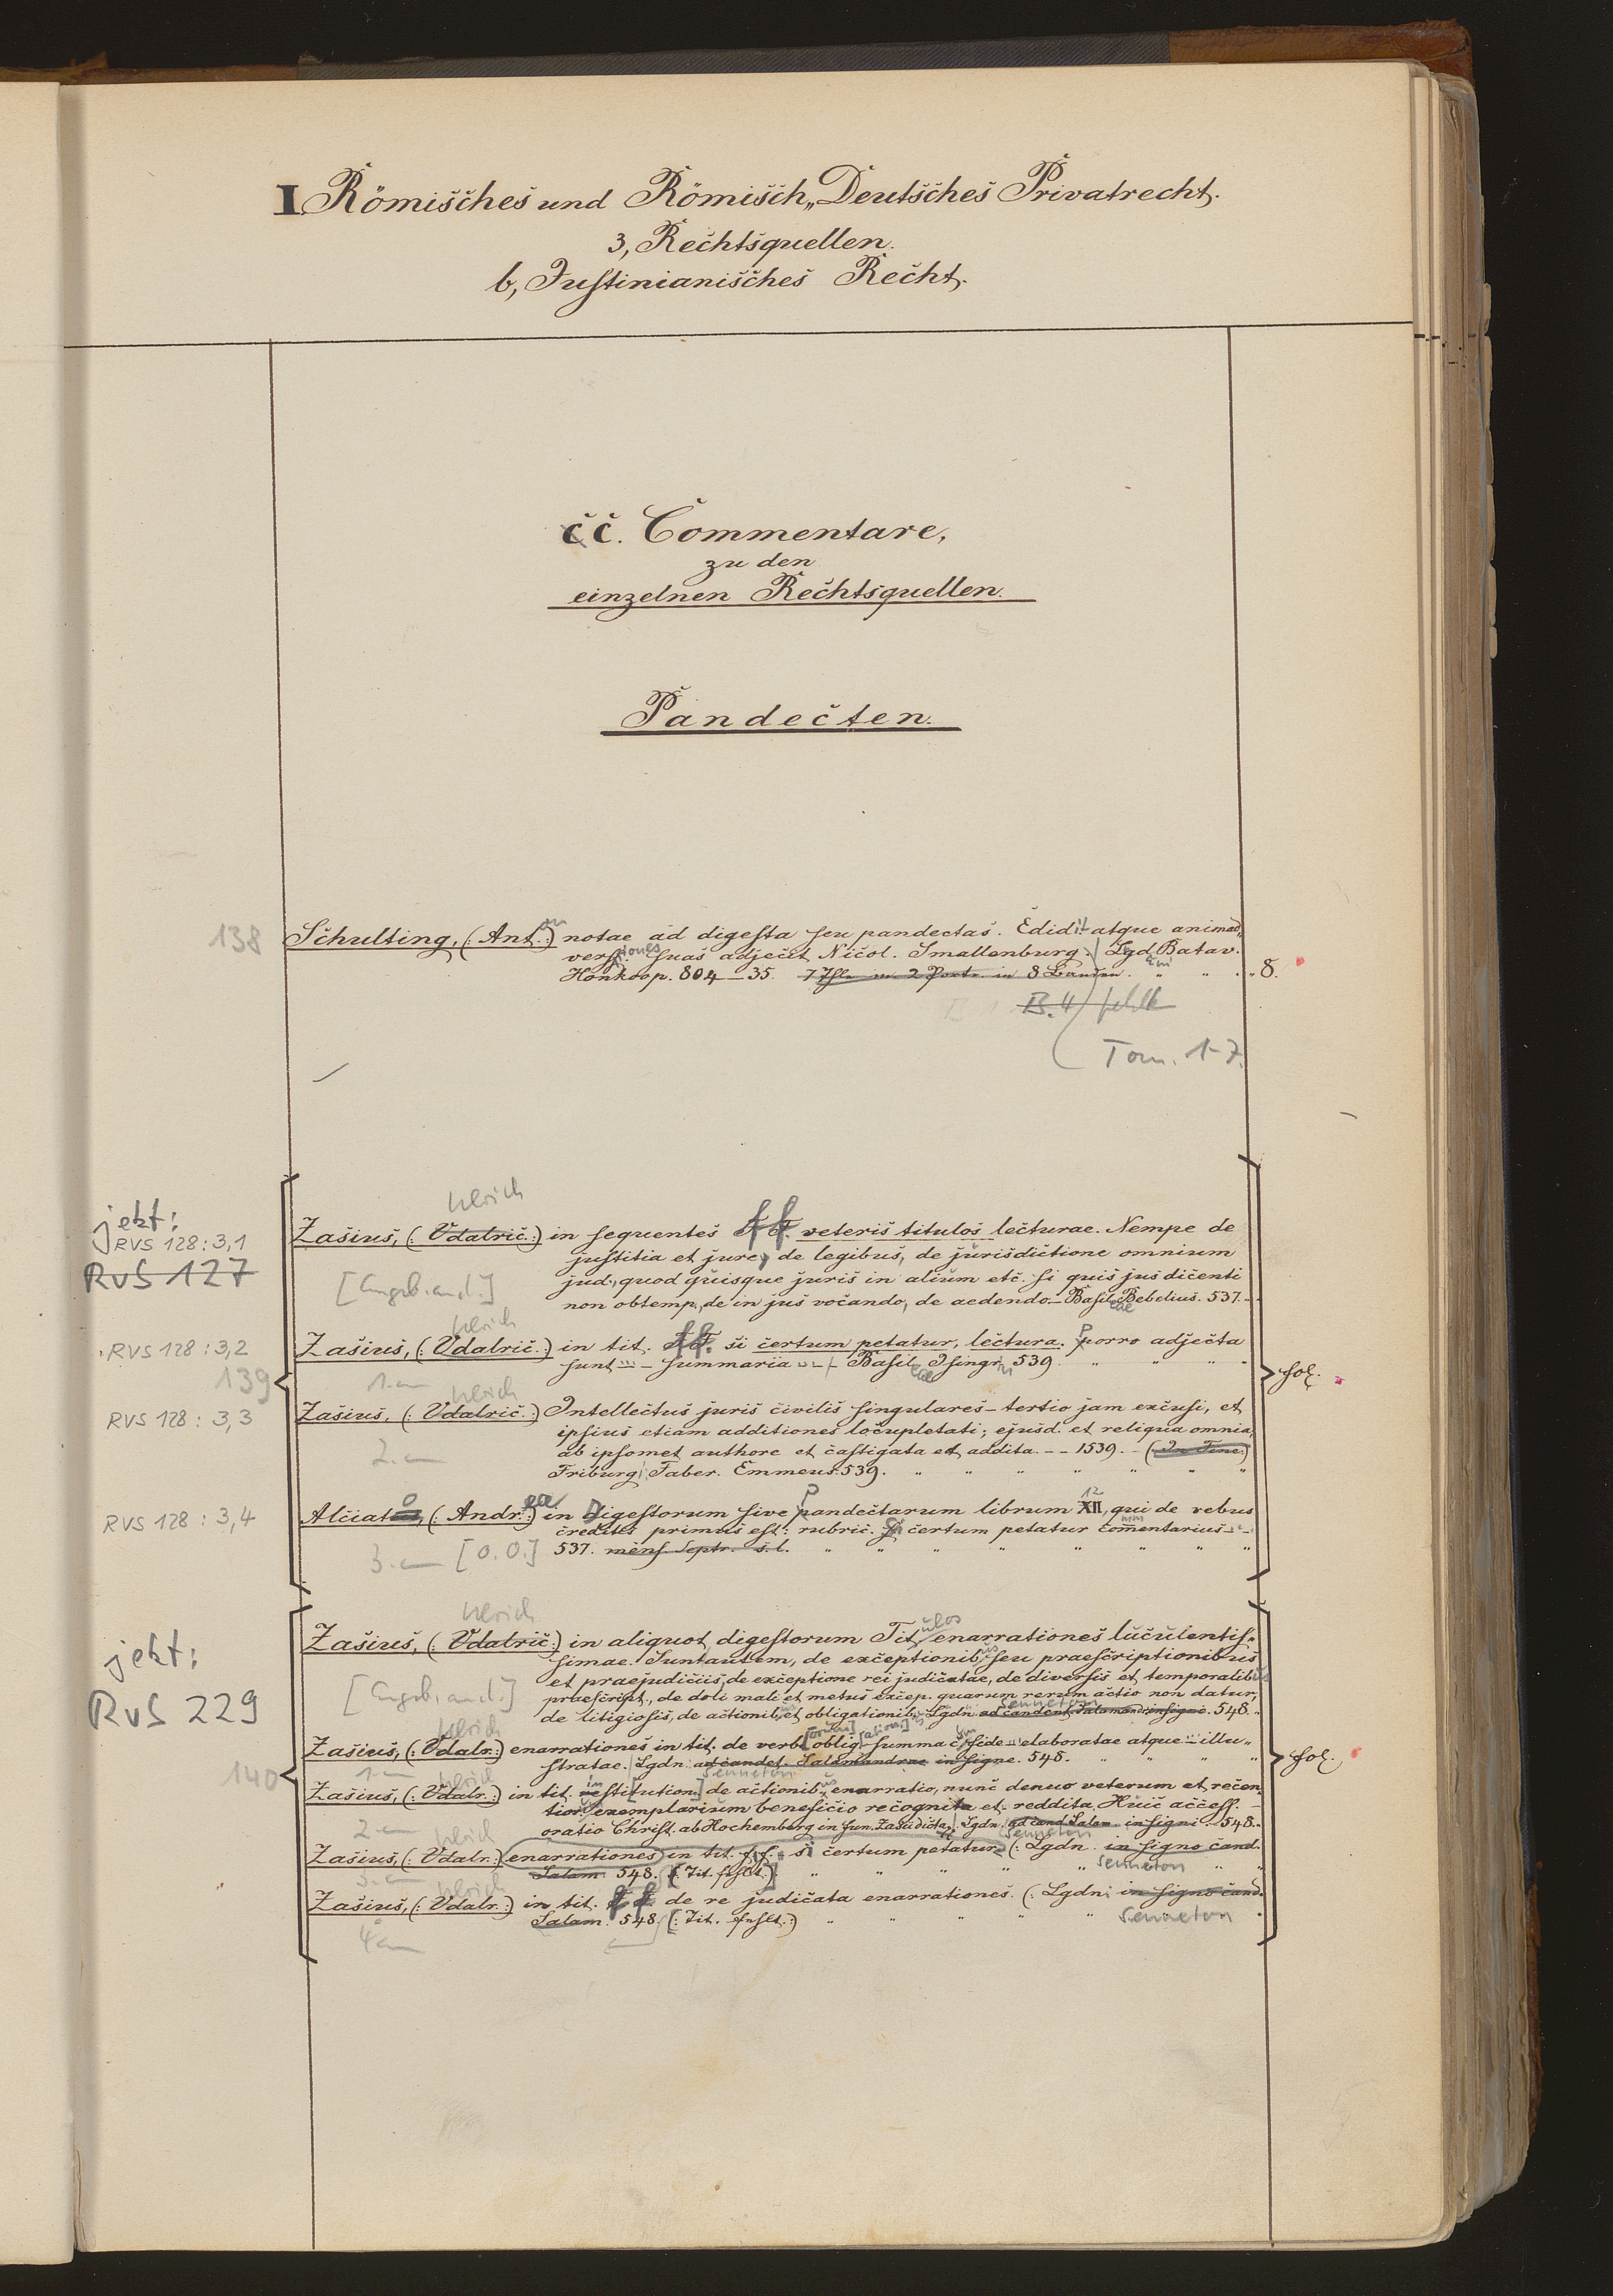 I. Römisches und Römisch„Deutsches Privatrecht.
3, Rechtsquellen.
b, Justinianisches Recht.
cc. Commentare,
zu den
einzelnen Rechtsquellen.
Pandecten.
138 Schulting, (: Ant. :) notae ad digesta seu pandectas. Edidit atque animad„
versiones suas adjecit Nicol. Smallenburg. Lgd. Batav.
Honkoop. 804–35. 7 Thle in 2 Partt. in 8 Bänden. " " " 8.
B. 4 fehlt
Tom. 1-7.
Ulrich
jetzt:
Zasius, (: Udalric. :) in sequentes ff. veteris titulos lecturae. Nempe de
RVS 128 : 3,1
justitia et jure, de legibus, de jurisdictione omnium
RVS 127
[Angeb. and.]
jud., quod quisque juris in alium etc. si quis jus dicenti
non obtemp., de in jus vocando, de aedendo – Basileae Bebelius. 537.
Ulrich
RVS 128 : 3,2 Zasius, (: Udalric. :) in tit. ff. si certum petatur, lectura. Porro adjecta
sunt ... – summaria ... – Basileae Isingrin 539 " " " "
139
fol.
1. Ulrich
RVS 128 : 3,3 Zasius, (: Udalric. :) Intellectus juris civilis singulares – tertio jam excusi, et
ipsius etiam additiones locupletati; ejusd. et reliqua omnia,
2.
ab ipsomet authore et castigata et addita. – – 1539. – (In Fine:)
Friburg. Faber. Emmeus. 539. " " " " " " "
RVS 128 : 3,4 Alciato, (: Andrea :) in Digestorum sive Pandectarum librum XII 12, qui de rebus
creditis primus est: rubric. Si certum petatur commentarius – –
3. [O.O.] 537. mens. Septr. s. l. " " " " " " " "
Ulrich
jetzt:
RVS 229
Zasius, (: Udalric :) in aliquot digestorum Titulos enarrationes luculentis„
simae. Suntautem, de exceptionibus, seu praescriptionibus
et praejudiciis, de exceptione rei judicatae, de diversis et temporalibus
[Angeb. and.]
praescript., de doli mali et metus excep. quarum rerum actio non datur,
Senneton
de litigiosis, de actionib. et obligationib. Lgdn. ad candent. Salamand. insigne. 548.
Ulrich
Zasius, (: Udalr. :) enarrationes in tit. de verb[orum] oblig[ationibus] summa cum fide ... elaboratae atque ... illu„
stratae. Lgdn. ad candet. Salamandrae in signe. 548. " " " "
140
fol.
1. Ulrich Senneton
Zasius, (: Udalr. :) in tit. institution. de actionibus, enarratio, nunc denuo veterum et recen„
tior. exemplarium beneficio recognita et reddita. Huic access. –
2. Ulrich
oratio Christ. ab Hochemberg in fun. Zasii dicta. Lgdn. ad cand. Salam. in signi. 548.
Senneton
Zasius, (: Udalr. :) enarrationes in tit. ff. si certum petatur (: Lgdn. in signo cand.
3. Salam. 548. [: Tit. fehlt. :] " " " " Senneton " "
Ulrich
Zasius, (: Udalr. :) in tit. ff. de re judicata enarrationes. (: Lgdn. in signo cand.
Salam. 548 [: Tit. fehlt. :) " " " " " Senneton
4